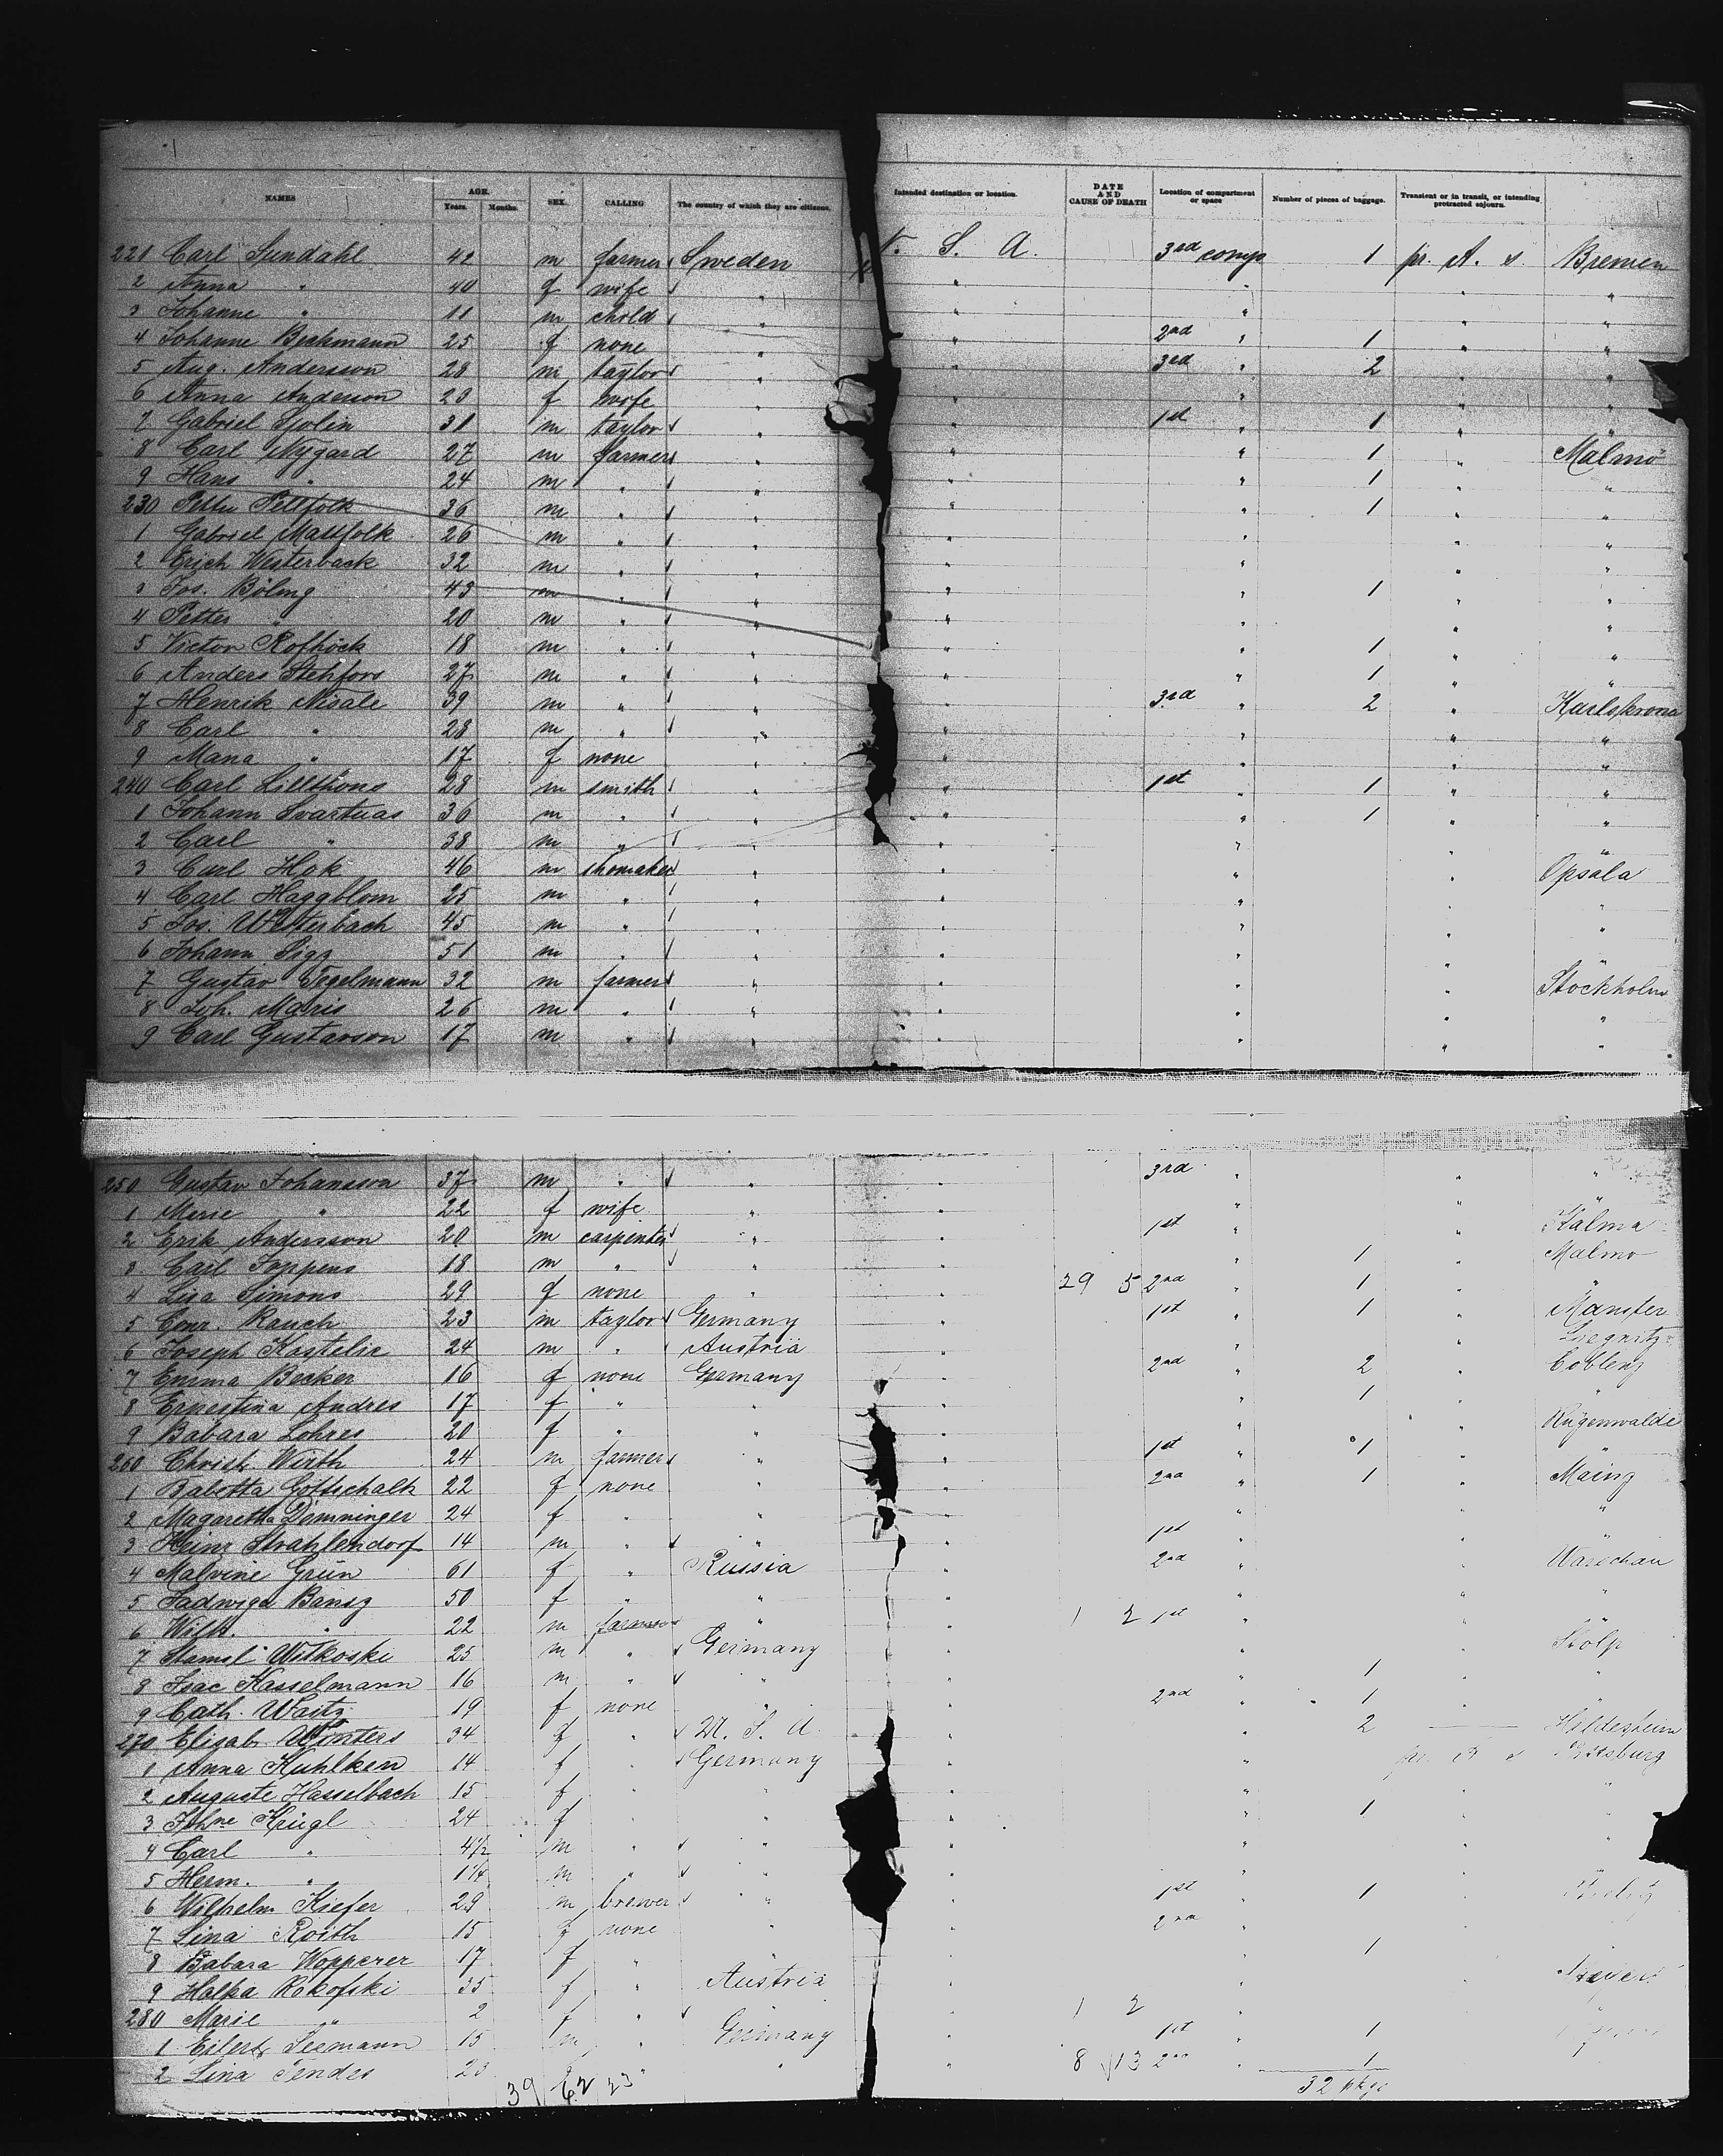 NAMES AGE. Years. Months. SEX. CALLING The country of which they are citizens. Intended destination or location. DATE AND CAUSE OF DEATH Location of compartment or space Number of pieces of baggage. Transient or in transit, or intending protracted sojourn.
221 Carl Sundahl 42 m farmer Sweden U. S. A. 3rd comp 1 pr. A. s. Bremen
2 Anna " 40 f wife " " " " "
3 Johanne " 11 m child " " " " "
4 Johanne Bechmann 25 f none " " 2nd " 1 " "
5 Aug. Andersson 28 m taylor " " 3rd " 2 " "
6 Anna Anderson 20 f wife " " " " "
7 Gabriel Sjolin 31 m taylor " " 1st " 1 " "
8 Carl Nygard 27 m farmer " " " 1 " Malmö
9 Hans " 24 m " " " " 1 " "
230 Petter Pellfolk 36 m " " " " 1 " "
1 Gabriel Mattfolk 26 m " " " " " "
2 Erich Westerback 32 m " " " " " "
3 Jos. Böling 43 m " " " " 1 " "
4 Petter " 20 m " " " " " "
5 Victor Rofhöck 18 m " " " " 1 " "
6 Anders Stehfors 27 m " " " " 1 " "
7 Henrik Nisale 39 m " " " 3rd " 2 " Karlskrona
8 Carl " 28 m " " " " " "
9 Mana " 17 f none " " " " "
240 Carl Lillthons 28 m smith " " 1st " 1 " "
1 Johann Svartnas 36 m " " " " 1 " "
2 Carl " 38 m " " " " " "
3 Carl Hok 46 m shomaker " " " " Opsala
4 Carl Haggblom 25 m " " " " " "
5 Jos. Westerbach 45 m " " " " " "
6 Johann Sigg 51 m " " " " " "
7 Gustav Tegelmann 32 m farmer " " " " Stockholm
8 Joh. Maris 26 m " " " " " "
9 Carl Gustavson 17 m " " " " " "
250 Gustav Johansson 37 m " " " 3rd " " "
1 Marie " 22 f wife " " " "
2 Erik Andersson 20 m carpenter " " 1st " " Kalma
3 Carl Joppens 18 m " " " " 1 " Malmo
4 Lisa Simons 29 f none " " 29 5 2nd " 1 " "
5 Conr. Rauch 23 m taylor Germany " 1st " 1 " Munster
6 Joseph Kastelic 24 m " Austria " " " Liegnitz
7 Emma Becker 16 f none Germany " 2nd " 2 " Coblenz
8 Ernestina Andres 17 f " " " " 1 " "
9 Babara Lohres 20 f " " " " " Rügenwalde
260 Christ. Wirth 24 m farmer " " 1st " 1 "
1 Babetta Gottschalk 22 f none " " 2nd " 1 " Mainz
2 Magaretha Demninger 24 f " " " " " "
3 Heinr Strahlendorf 14 m " " " 1st " " "
4 Malvine Grün 61 f " Russia " 2nd " " Warschau
5 Jadwiga Bansz 50 f " " " " " "
6 Wilh. " 22 m farmer " " 1 2 1st "
7 Stamsl Witkoski 25 m " Germany " " " Stolp
8 Isac Hasselmann 16 m " " " " 1 "
9 Cath. Waitz 19 f none " " 2nd " 1 " "
270 Elisab. Winters 34 f " U. S. A. " " 2 — Hildesheim
1 Anna Kuhlken 14 f " Germany " pr. A s
2 Auguste Hasselbach 15 f " " " " " "
3 Johne Krügl 24 f " " " " 1 "
4 Carl " 4½ m " " " " " "
5 Herm. " 1¼ m " " " "
6 Wilhelm Kiefer 29 m brewer " " 1st " 1 "
7 Lina Roith 15 f none " " 2nd "
8 Babara Wopperer 17 f " " " " 1
9 Halka Rokofski 35 f " Austria " "
280 Marie " 2 f " " " 1 2 " "
1 Eilert Seemann 15 m " Germany " 1st " 1
2 Lina Tendes 23 f " " " 8 13 2nd " 1
39 62 23 32 pkgs